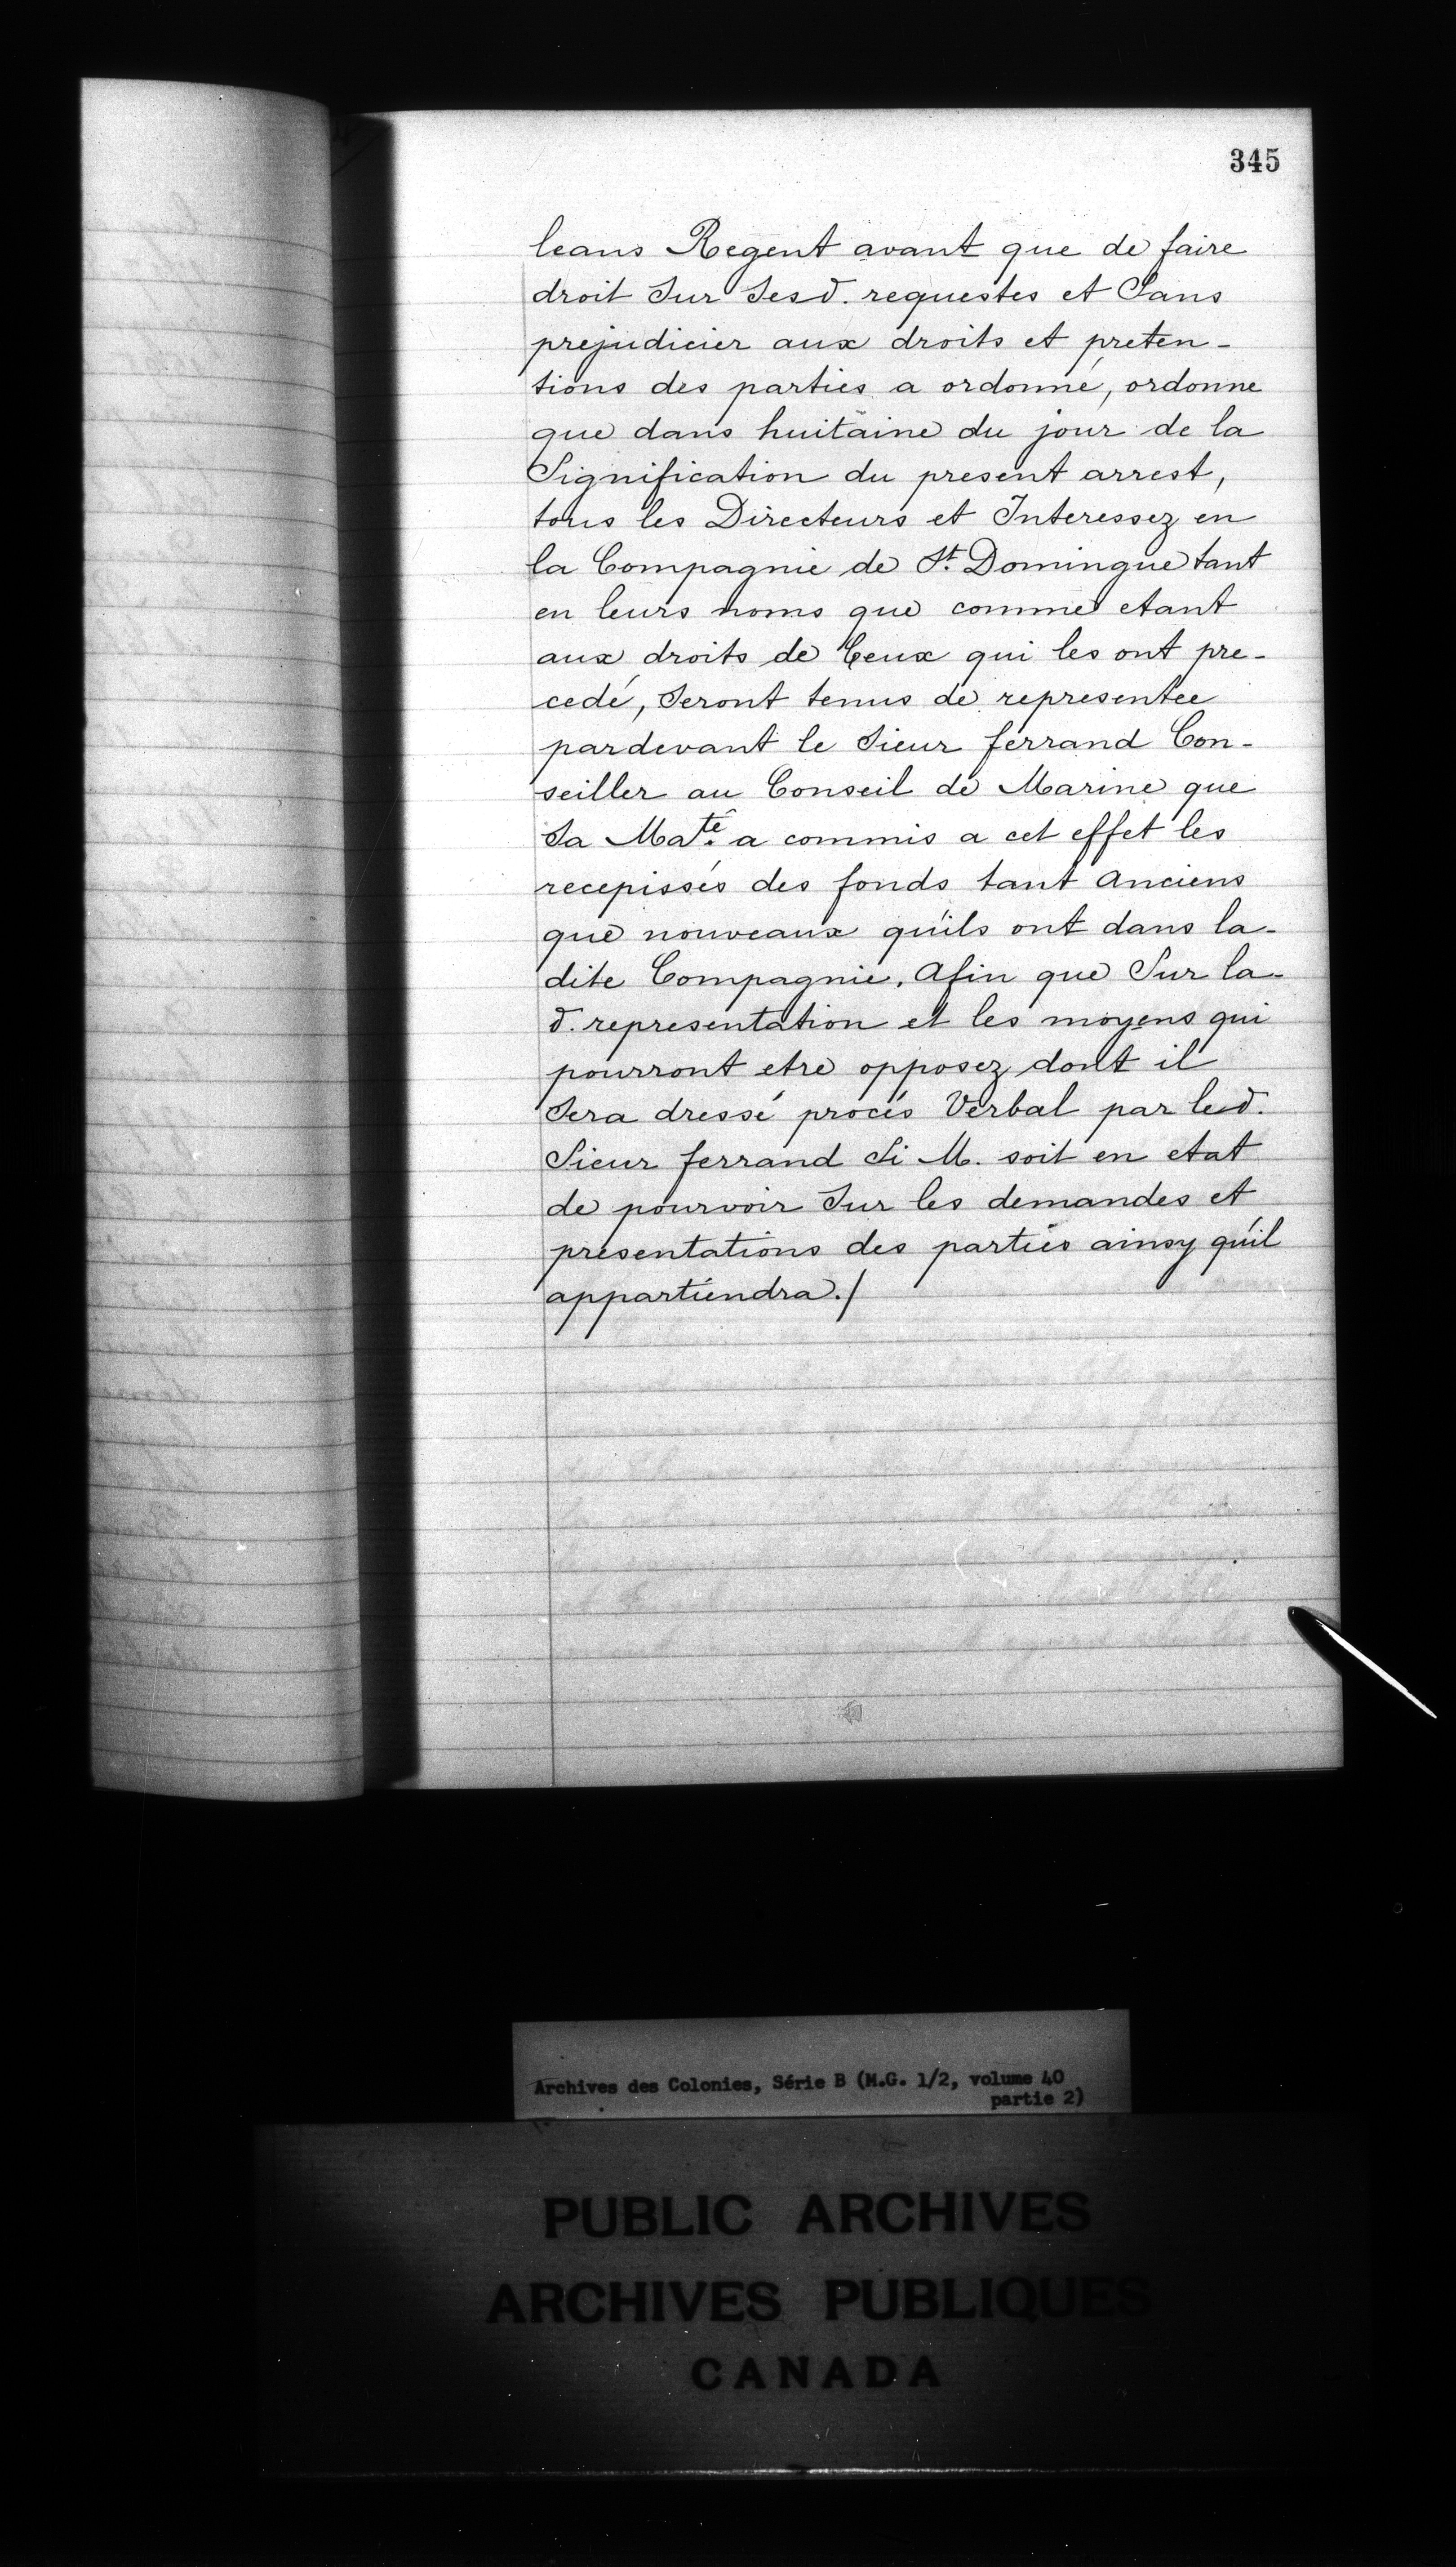 345
leans Regent avant que de faire
droit Sur Sesd. requestes et Sans
prejudicier aux droits et preten-
tions des parties a ordonné, ordonne
que dans huitaine du jour de la
Signification du present arrest,
tous les Directeurs et Interessez en
la Compagnie de St. Domingue tant
en leurs noms que comme etant
aux droits de Ceux qui les ont pre-
cedé, Seront tenus de representee
pardevant le Sieur ferrand Con-
seiller au Conseil de Marine que
Sa Maté. a commis a cet effet les
recepissés des fonds tant anciens
que nouveaux qu'ils ont dans la-
dite Compagnie. Afin que Sur la-
d. representation et les moyens qui
pourront etre opposez dont il
Sera dressé procés Verbal par led.
Sieur ferrand Si M. soit en etat
de pourvoir Sur les demandes et
presentations des parties ainsy qu'il
appartiendra./
Archives des Colonies, Série B (M.G. 1/2, volume 40
partie 2)
PUBLIC ARCHIVES
ARCHIVES PUBLIQUES
CANADA